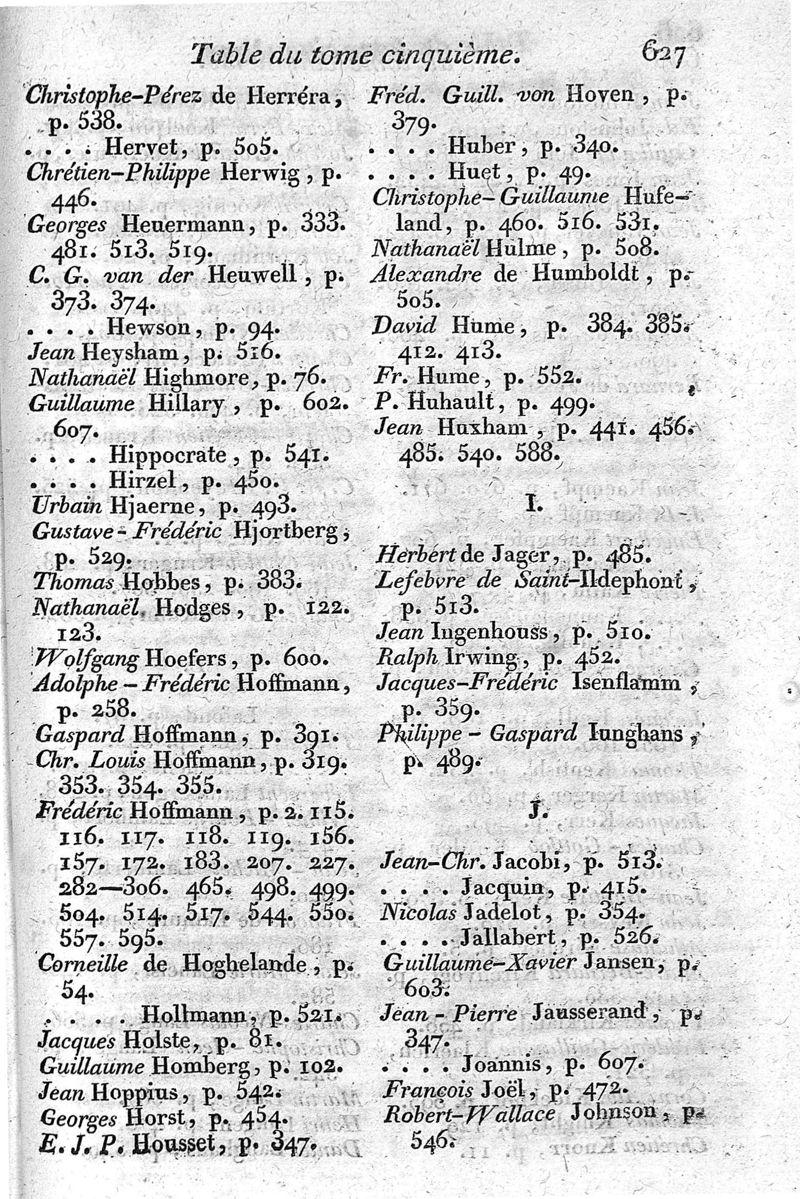 Table du tome cinquième. 627
Christophe-Pérez de Herréra,
p. 538.
. . . . Hervet, p. 505.
Chrétien-Philippe Herwig, p.
446.
Georges Heuermann, p. 333.
481. 513. 519.
C. G. van der Heuwell, p.
373. 374.
. . . . Hewson, p. 94.
Jean Heysham, p. 516.
Nathanaël Highmore, p. 76.
Guillaume Hillary, p. 602.
607.
. . . . Hippocrate, p. 541.
. . . . Hirzel, p. 450.
Urbain Hjaerne, p. 493.
Gustave-Frédéric Hjortberg,
p. 529.
Thomas Hobbes, p. 383.
Nathanaël Hodges, p. 122.
123.
Wolfgang Hoefers, p. 600.
Adolphe-Frédéric Hoffmann,
p. 258.
Gaspard Hoffmann, p. 391.
Chr. Louis Hoffmann, p. 319.
353. 354. 355.
Frédéric Hoffmann, p. 2. 115.
116. 117. 118. 119. 156.
157. 172. 183. 207. 227.
282—306. 465. 498. 499.
504. 514. 517. 544. 550.
557. 595.
Corneille de Hoghelande, p.
54.
. . . . Hollmann, p. 521.
Jacques Holste, p. 81.
Guillaume Homberg, p. 102.
Jean Hoppius, p. 542.
Georges Horst, p. 454.
E. J. P. Housset, p. 347.
Fréd. Guill. von Hoven, p.
379.
. . . . Huber, p. 340.
. . . . Huet, p. 49.
Christophe-Guillaume Hufe-
land, p. 460. 516. 531.
Nathanaël Hulme, p. 508.
Alexandre de Humboldt, p.
505.
David Hume, p. 384. 385.
412. 413.
Fr. Hume, p. 552.
P. Huhault, p. 499.
Jean Huxham, p. 441. 456.
485. 540. 588.
I.
Herbert de Jager, p. 485.
Lefebvre de Saint-Ildephont,
p. 513.
Jean Ingenhouss, p. 510.
Ralph Irwing, p. 452.
Jacques-Frédéric Isenflamm,
p. 359.
Philippe-Gaspard Iunghans,
p. 489.
J.
Jean-Chr. Jacobi, p. 513.
. . . . Jacquin, p. 415.
Nicolas Jadelot, p. 354.
. . . . Jallabert, p. 526.
Guillaume-Xavier Jansen, p.
603.
Jean-Pierre Jausserand, p.
347.
. . . . Joannis, p. 607.
François Joël, p. 472.
Robert-Wallace Johnson, p.
546.